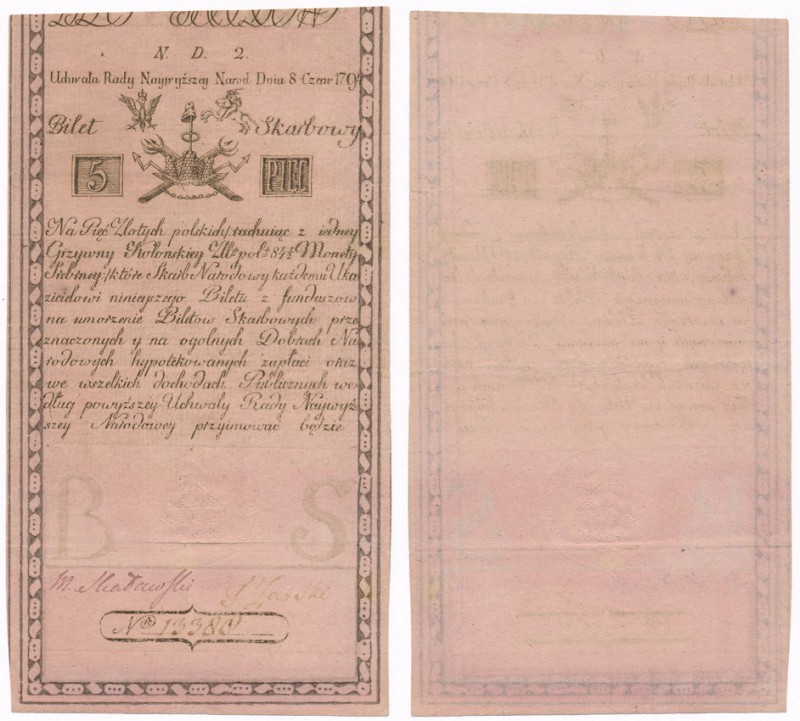 N. D. 2.
Uchwała Rady Naywyższey Narod Dnia 8 Czerw 1794
Bilet Skarbowy
5 PIĘĆ
Na Pięć Złotych polskich/rachuiąc z iedney
Grzywny Kolońskiey Złt pol: 84½ Monety
Srebrney/które Skarb Narodowy każdemu Uka
zicielowi ninieyszego Biletu z funduszow
na umorzenie Biletow Skarbowych prze
znaczonych y na ogolnych Dobrach Na
rodowych hypotekowanych zapłaci oraz
we wszelkich dochodach Publicznych we
dług powyższey Uchwały Rady Naywyż
szey Narodowey przyimować będzie
B S
No 13380